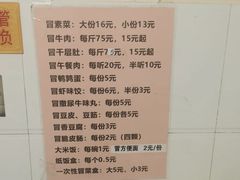 冒素菜：大份16元，小份13元
冒牛肉：每斤75元，15元起
冒千层肚：每斤75元，15元起
冒午餐肉：每听20元，半听10元
冒鸭鹅蛋：每份5元
冒虾味饺：每份3元
冒撒尿牛味丸：每份5元
冒豆皮、豆筋：每份各5元
冒香豆腐：每份3元
冒脆皮肠：每份2元（四颗）
大米饭：每碗1元 官方便面 2元/份
纸饭盒：每个0.5元
一次性冒菜盒：大5元，小3元